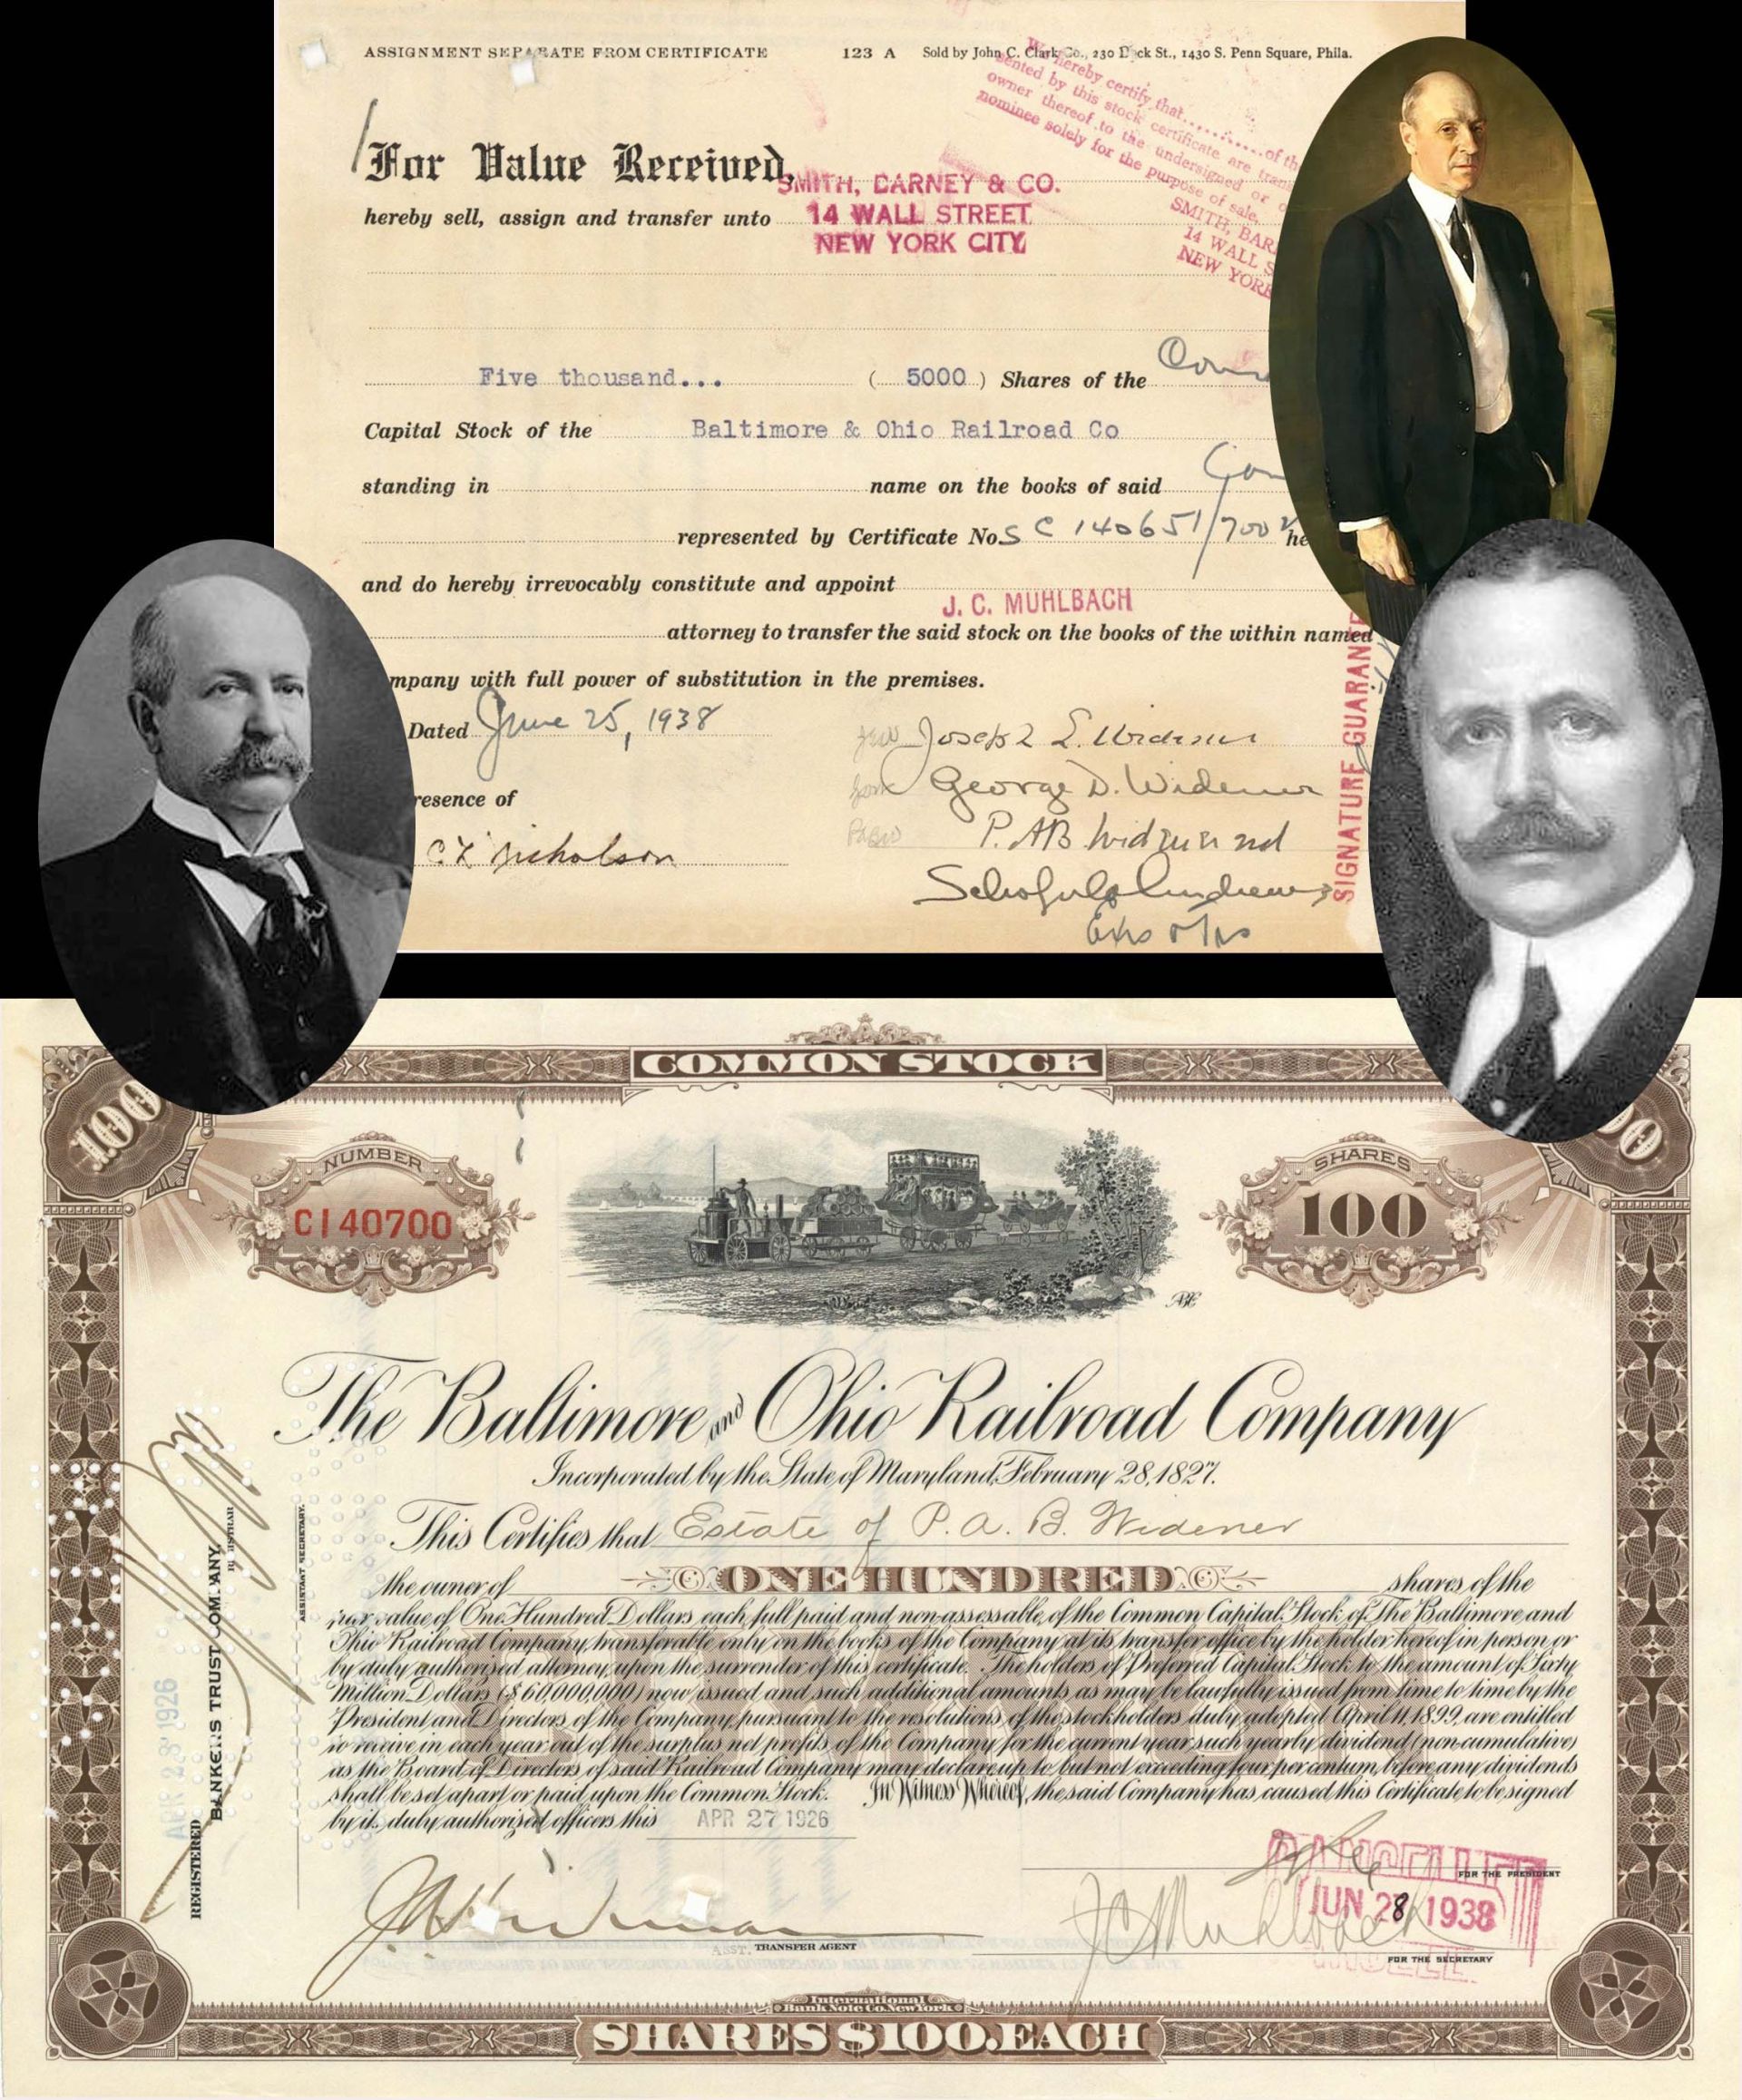 ASSIGNMENT SEPARATE FROM CERTIFICATE 123 A Sold by John C. Clark Co., 230 Dock St., 1430 S. Penn Square, Phila.
We hereby certify that..........of th
sented by this stock certificate are tran
owner thereof to the undersigned or
nominee solely for the purpose of sale,
SMITH, BAR
14 WALL S
NEW YORK
For Value Received,
SMITH, BARNEY & CO.
hereby sell, assign and transfer unto 14 WALL STREET
NEW YORK CITY
Five thousand... ( 5000 ) Shares of the Com
Capital Stock of the Baltimore & Ohio Railroad Co
standing in name on the books of said Com
represented by Certificate Nos C 140651/700 he
and do hereby irrevocably constitute and appoint
J. C. MUHLBACH
attorney to transfer the said stock on the books of the within named
mpany with full power of substitution in the premises.
Dated June 25, 1938
jew Joseph E. Widener
George D. Widener
resence of
PABW P. A B Widener 2nd
C K Nicholson
Exrs
SIGNATURE GUARANTE
COMMON STOCK
100
NUMBER
C140700
SHARES
100
The Baltimore and Ohio Railroad Company
Incorporated by the State of Maryland, February 28, 1827.
This Certifies that Estate of P. A. B. Widener
the owner of ONE HUNDRED shares of the
par value of One Hundred Dollars each, full paid and non-assessable, of the Common Capital Stock of The Baltimore and
Ohio Railroad Company, transferable only on the books of the Company at its transfer office by the holder hereof in person or
by duly authorized attorney, upon the surrender of this certificate. The holders of Preferred Capital Stock to the amount of Sixty
Million Dollars ($60,000,000) now issued and such additional amounts as may be lawfully issued from time to time by the
President and Directors of the Company, pursuant to the resolutions of the stockholders duly adopted April 11, 1899, are entitled
to receive in each year out of the surplus net profits of the Company for the current year, such yearly dividend (noncumulative)
as the Board of Directors of said Railroad Company may declare up to but not exceeding four per centum, before any dividends
shall be set apart or paid upon the Common Stock. In Witness Whereof, the said Company has caused this Certificate to be signed
by its duly authorized officers this APR 27 1926
ASSISTANT SECRETARY.
REGISTRAR
BANKERS TRUST COMPANY,
REGISTERED
APR 28 1926
CANCELLED
JUN 28 1938
FOR THE PRESIDENT
J C Muhlbach
FOR THE SECRETARY
ASST. TRANSFER AGENT
International
Bank Note Co. New York
SHARES $100. EACH